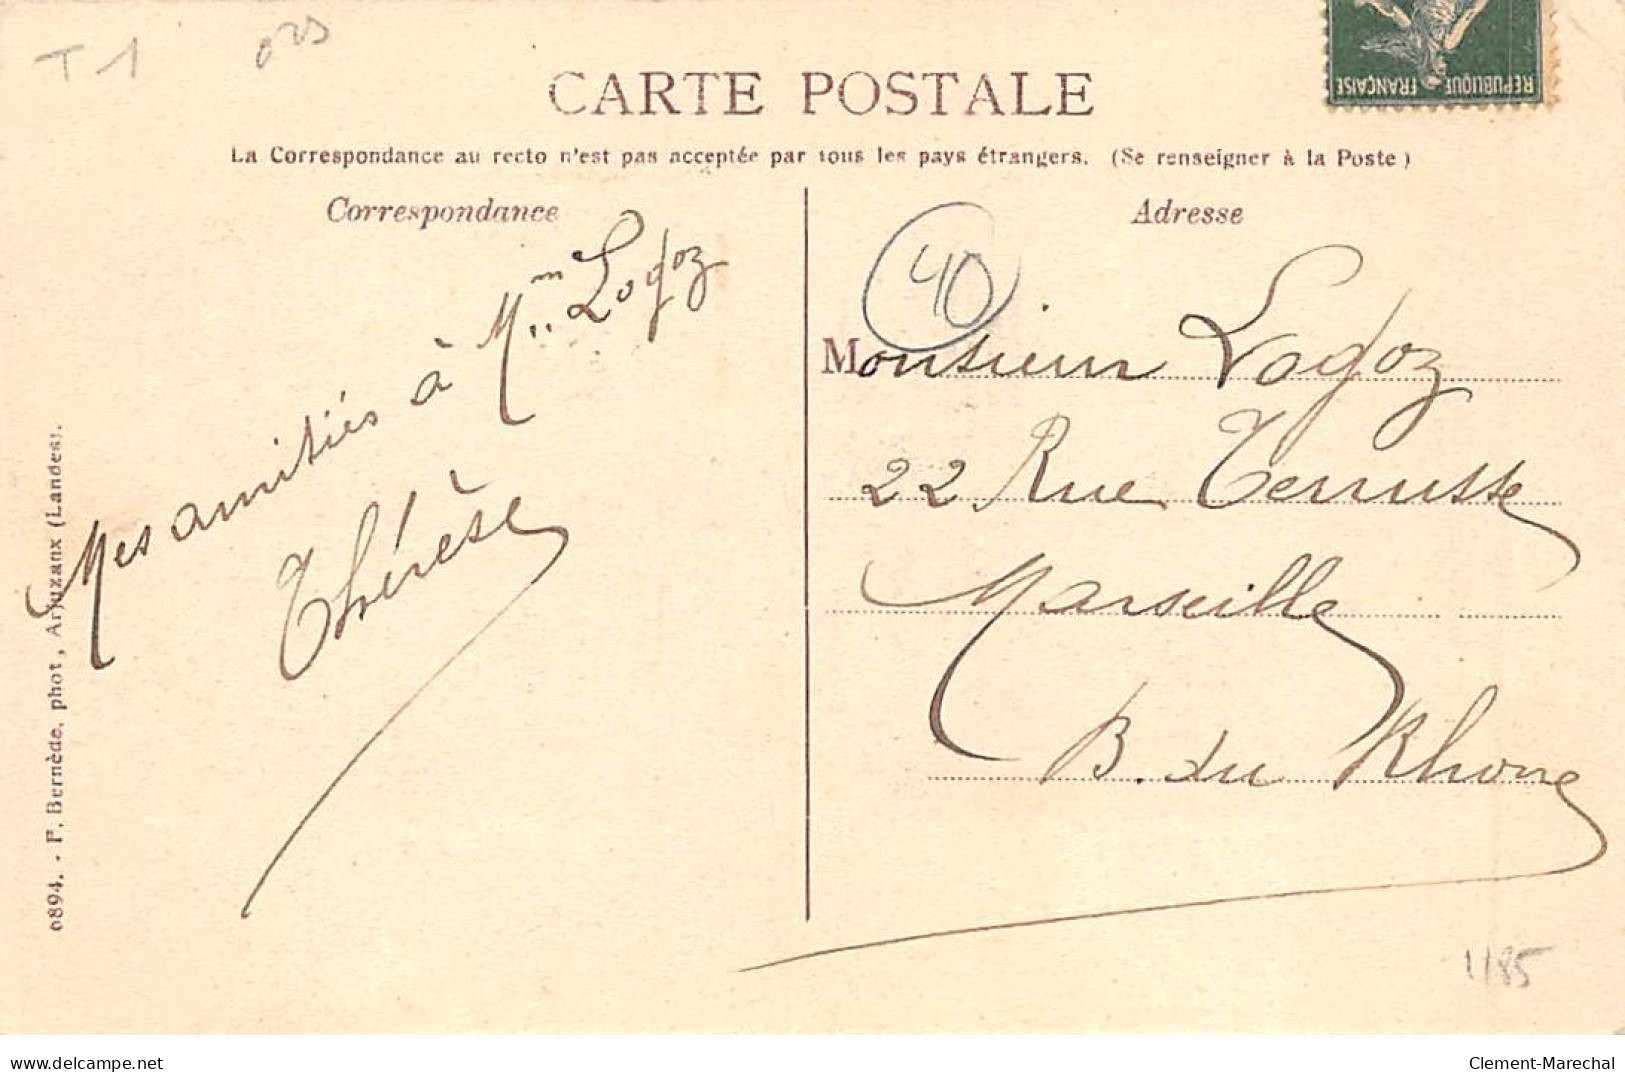 T1
CARTE POSTALE
REPUBLIQUE FRANÇAISE
La Correspondance au recto n'est pas acceptée par tous les pays étrangers. (Se renseigner à la Poste)
Correspondance
Mes amitiés à Mme Logoz
Thérèse
0894. - F. Bernède, phot, Arjuzanx (Landes).
Adresse
40
Monsieur Logoz
22 Rue Terrusse
Marseille
B. du Rhône
1185
www.delcampe.net
Clement-Marechal